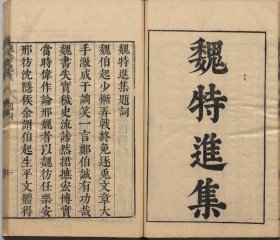 魏特進集
魏特進集題詞
魏伯起少慚弄戟終免逐兎文章大
手激成于謔笑一言鄭伯誠有功哉
魏書失實穢史流謗然招摭宏博實
當時偉作論邢魏者以魏彷任樂安
邢彷沈隱侯余謂伯起生平文體得